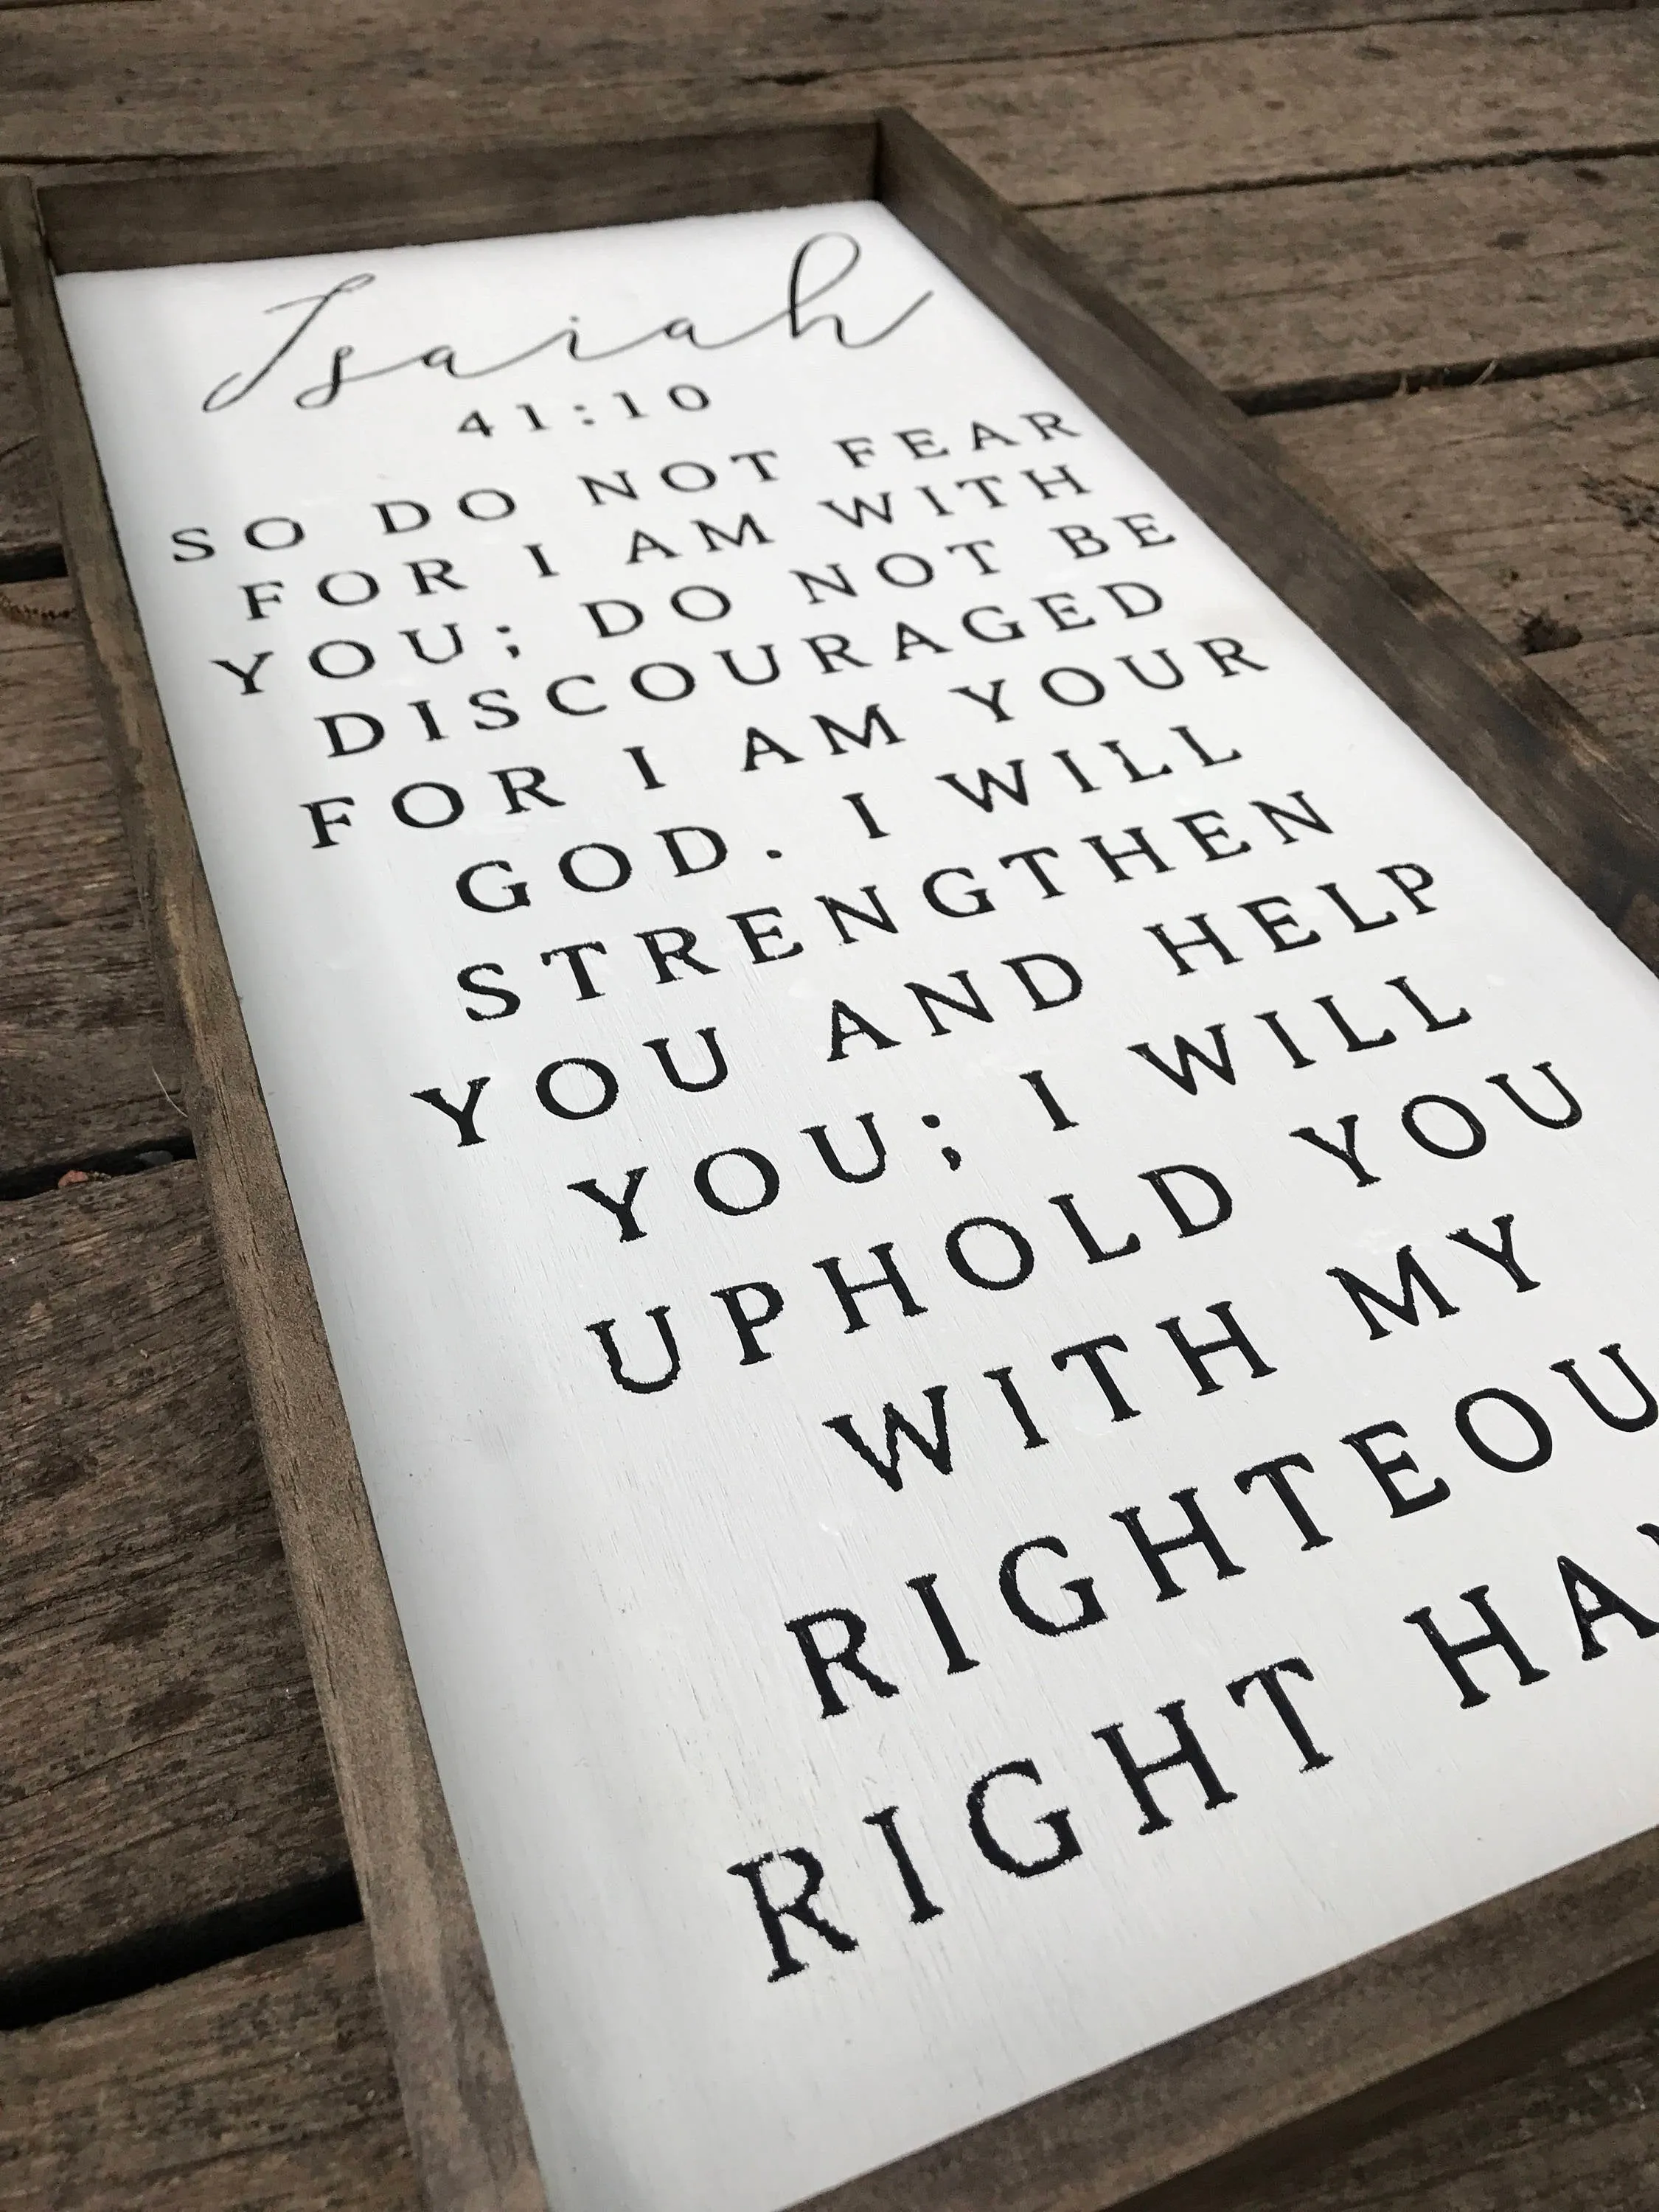 Isaiah
41:10
SO DO NOT FEAR
FOR I AM WITH
YOU; DO NOT BE
DISCOURAGED
FOR I AM YOUR
GOD. I WILL
STRENGTHEN
YOU AND HELP
YOU; I WILL
UPHOLD YOU
WITH MY
RIGHTEOU
RIGHT HA